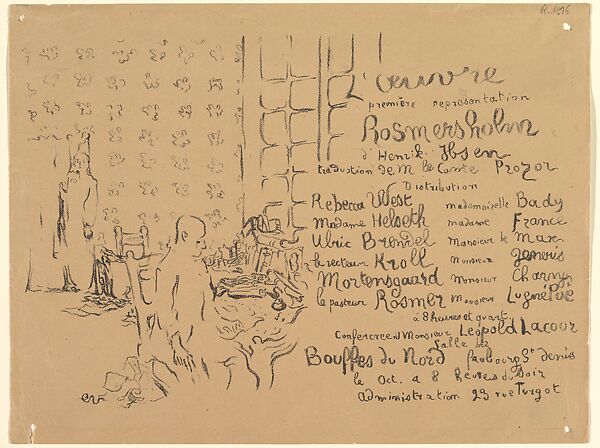 L'œuvre
première representation
Rosmersholm
d'Henrik Ibsen
traduction de M le Comte Prozor
Distribution
Rebecca West mademoiselle Bady
Madame Helseth madame France
Ulric Brendel Monsieur le Marx
le recteur Kroll Monsieur
Mortensgaard Monsieur Charny
le pasteur Rosmer Monsieur Lugné Poe
à 8 heures et quart
Conference de Monsieur Leopold Lacour
Salle des
Bouffes du Nord faubourg St denis
le Oct. a 8 heures du soir
administration 23 rue Turgot
ev